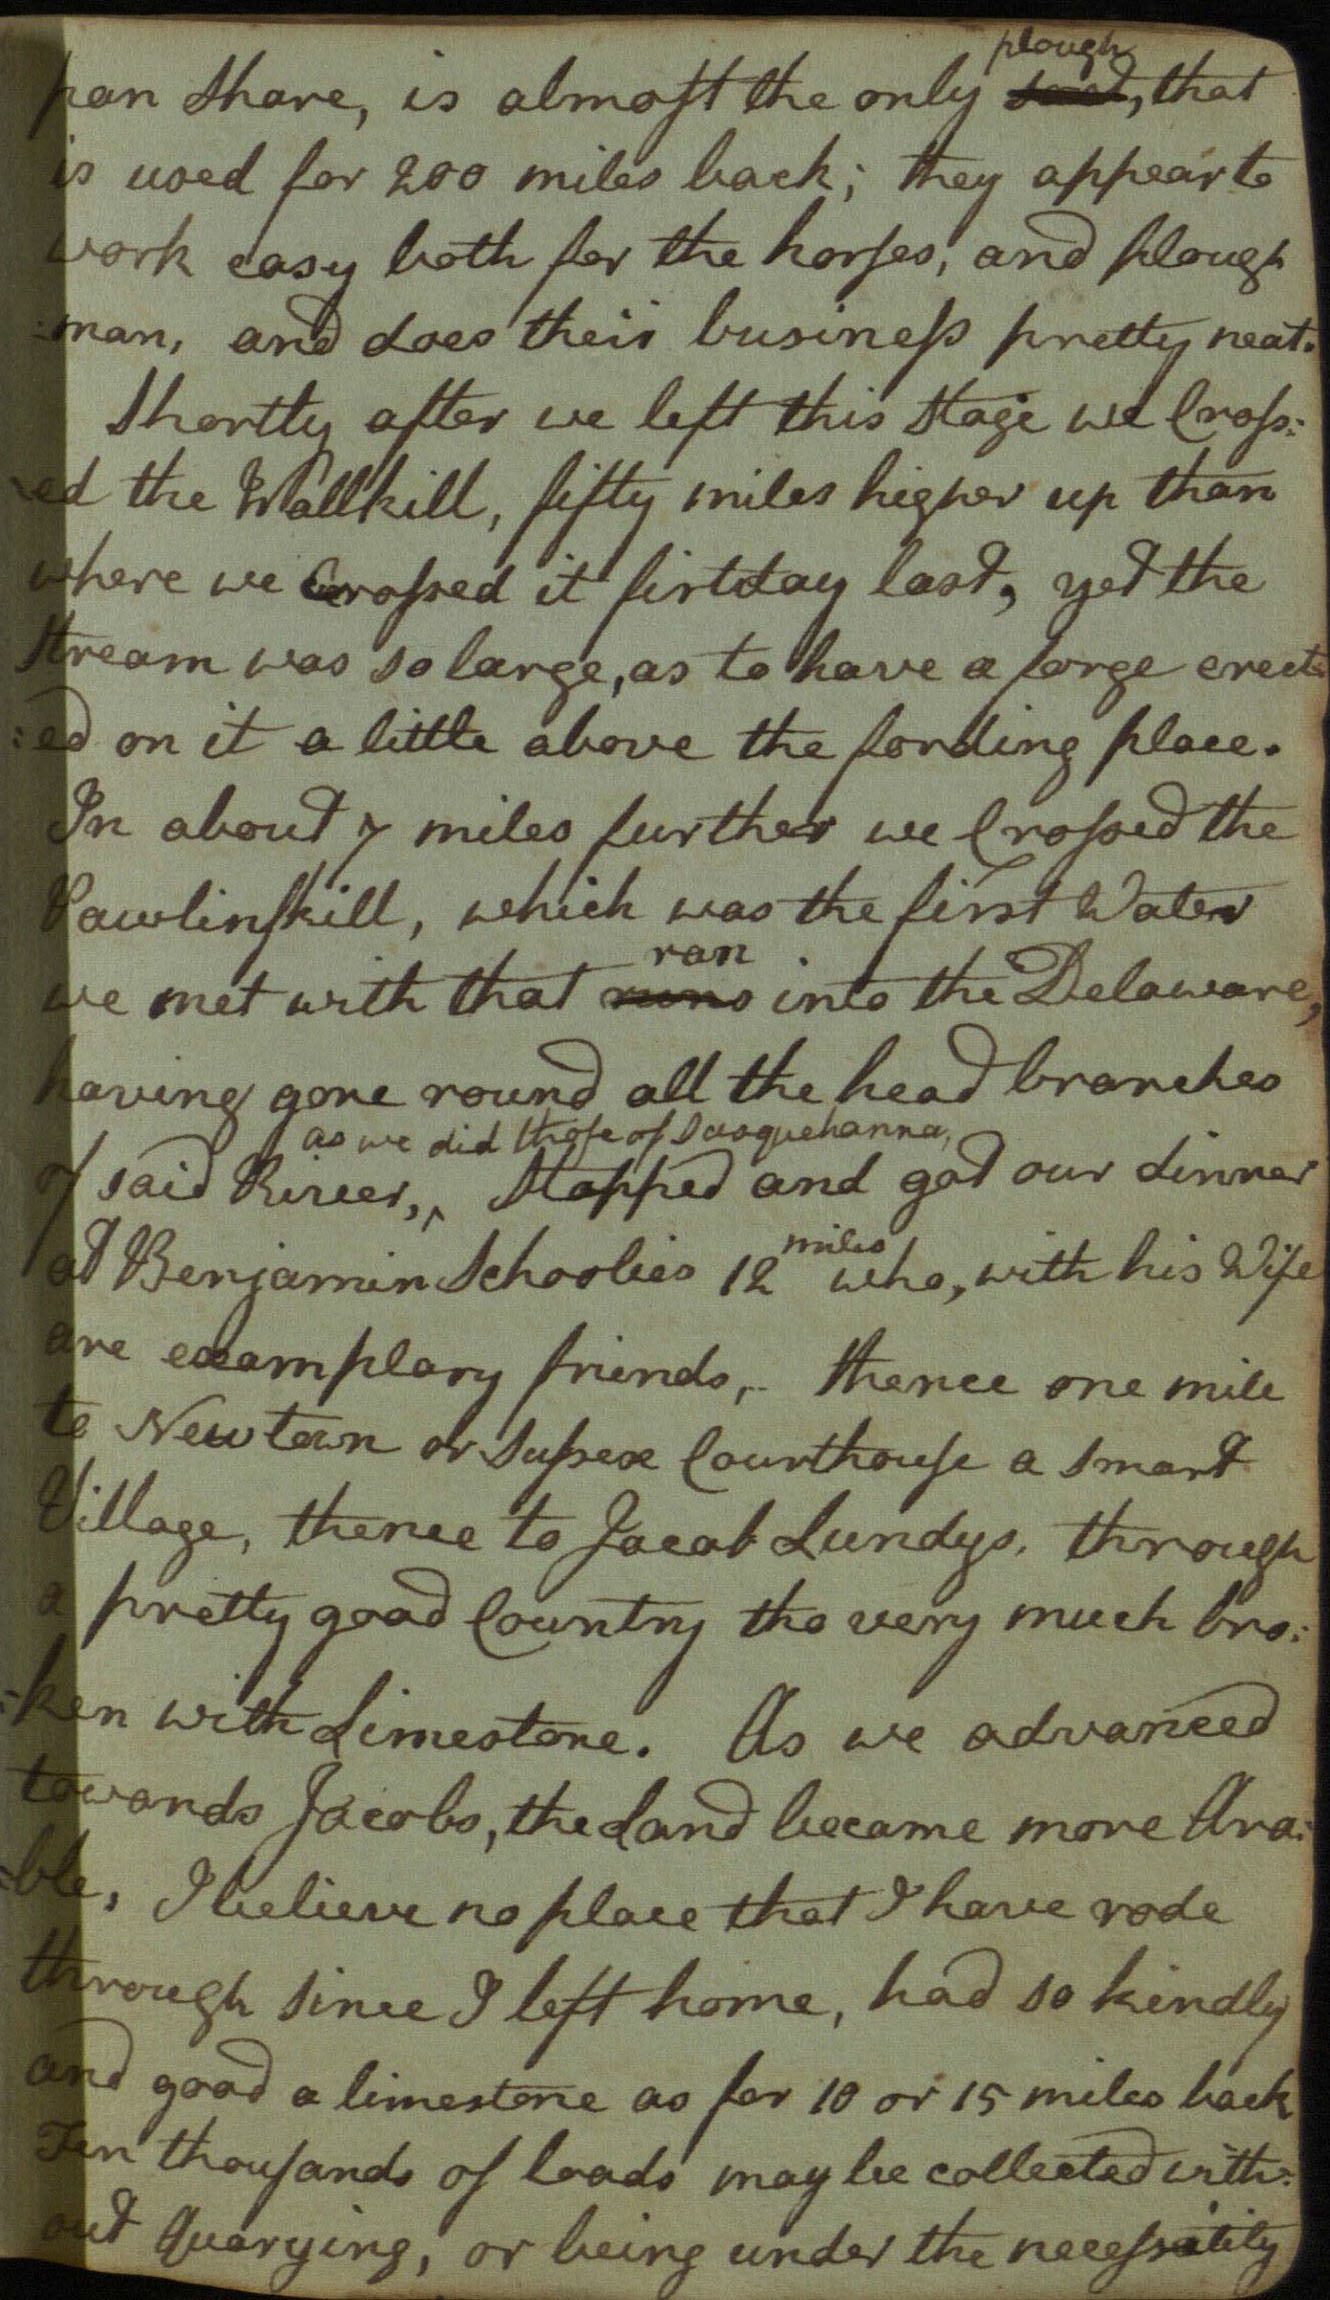 pan share, is almost the only plough, that
is used for 200 miles back; they appear to
work easy both for the horses, and plough
:man, and does their business pretty neat.
Shortly after we left this stage we Cross:
:ed the Wallkill, fifty miles higher up than
where we Crossed it firstday last, yet the
stream was so large, as to have a forge erect:
:ed on it a little above the fording place.
In about 7 miles further we Crossed the
Pawlinskill, which was the first Water
ran
we met with that runs into the Delaware,
having gone round all the head branches
as we did those of Susquehanna,
of said River,^ Stopped and got our dinner
at Benjamin Schoolies 12 miles who, with his Wife
are examplary friends, thence one mile
to Newtown or Sussex Courthouse a smart
Village, thence to Jacob Lundys, through
a pretty good Country tho very much bro:
:ken with Limestone. As we advanced
towards Jacobs, the Land became more Ara:
:ble, I believe no place that I have rode
through since I left home, had so kindly
and good a limestone as for 10 or 15 miles back
Ten thousands of loads may be collected with:
out Quarying, or being under the necessitity